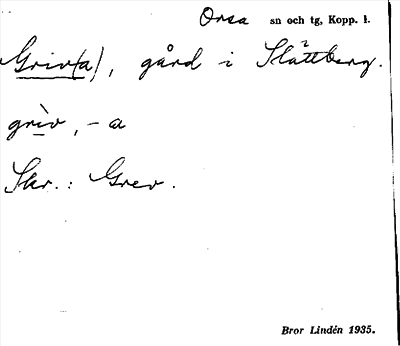 Orsa sn och tg, Kopp. l.
Griv(a), gård i Slättberg.
grìv, -a
Skr.: Grev.
Bror Lindén 1935.